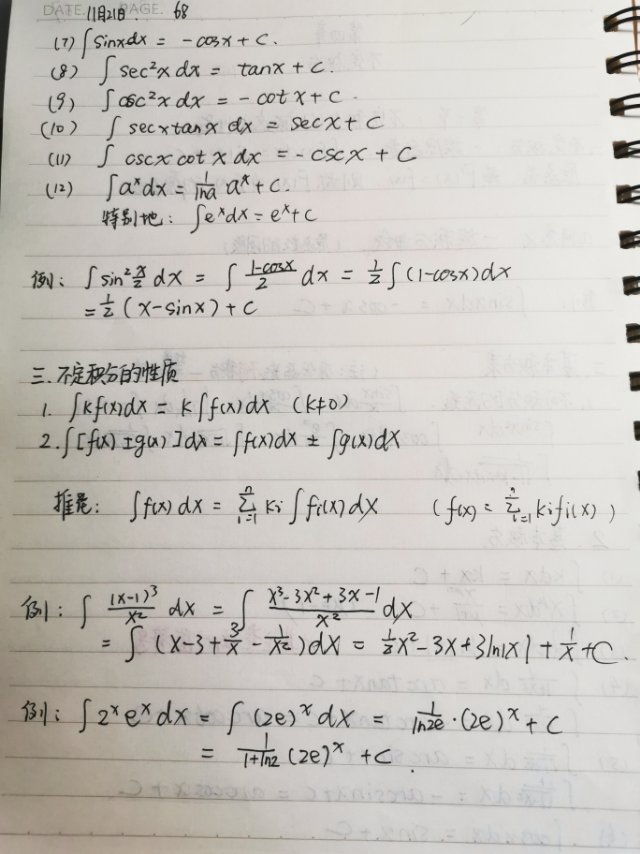 DATE. 11月21日. PAGE. 68
(7) ∫sinxdx = -cosx + C.
(8) ∫sec²x dx = tanx + C.
(9) ∫csc²x dx = -cotx + C.
(10) ∫secxtanx dx = secx + C
(11) ∫cscx cotx dx = -cscx + C
(12) ∫aˣdx = 1/lna aˣ + C.
特别地: ∫eˣdx = eˣ + C
例: ∫sin² x/2 dx = ∫ (1-cosx)/2 dx = 1/2 ∫(1-cosx)dx
= 1/2 (x-sinx) + C
三. 不定积分的性质
1. ∫kf(x)dx = k∫f(x)dx (k≠0)
2. ∫[f(x) ± g(x)]dx = ∫f(x)dx ± ∫g(x)dx
推是: ∫f(x)dx = Σⁿᵢ₌₁ ki ∫fi(x)dx (f(x) = Σⁿᵢ₌₁ kifi(x))
例: ∫ (x-1)³/x² dx = ∫ (x³-3x²+3x-1)/x² dx
= ∫ (x-3+3/x - 1/x²)dx = 1/2x² - 3x + 3ln|x| + 1/x + C.
例: ∫2ˣeˣdx = ∫(2e)ˣdx = 1/ln2e · (2e)ˣ + C
= 1/(1+ln2) (2e)ˣ + C.